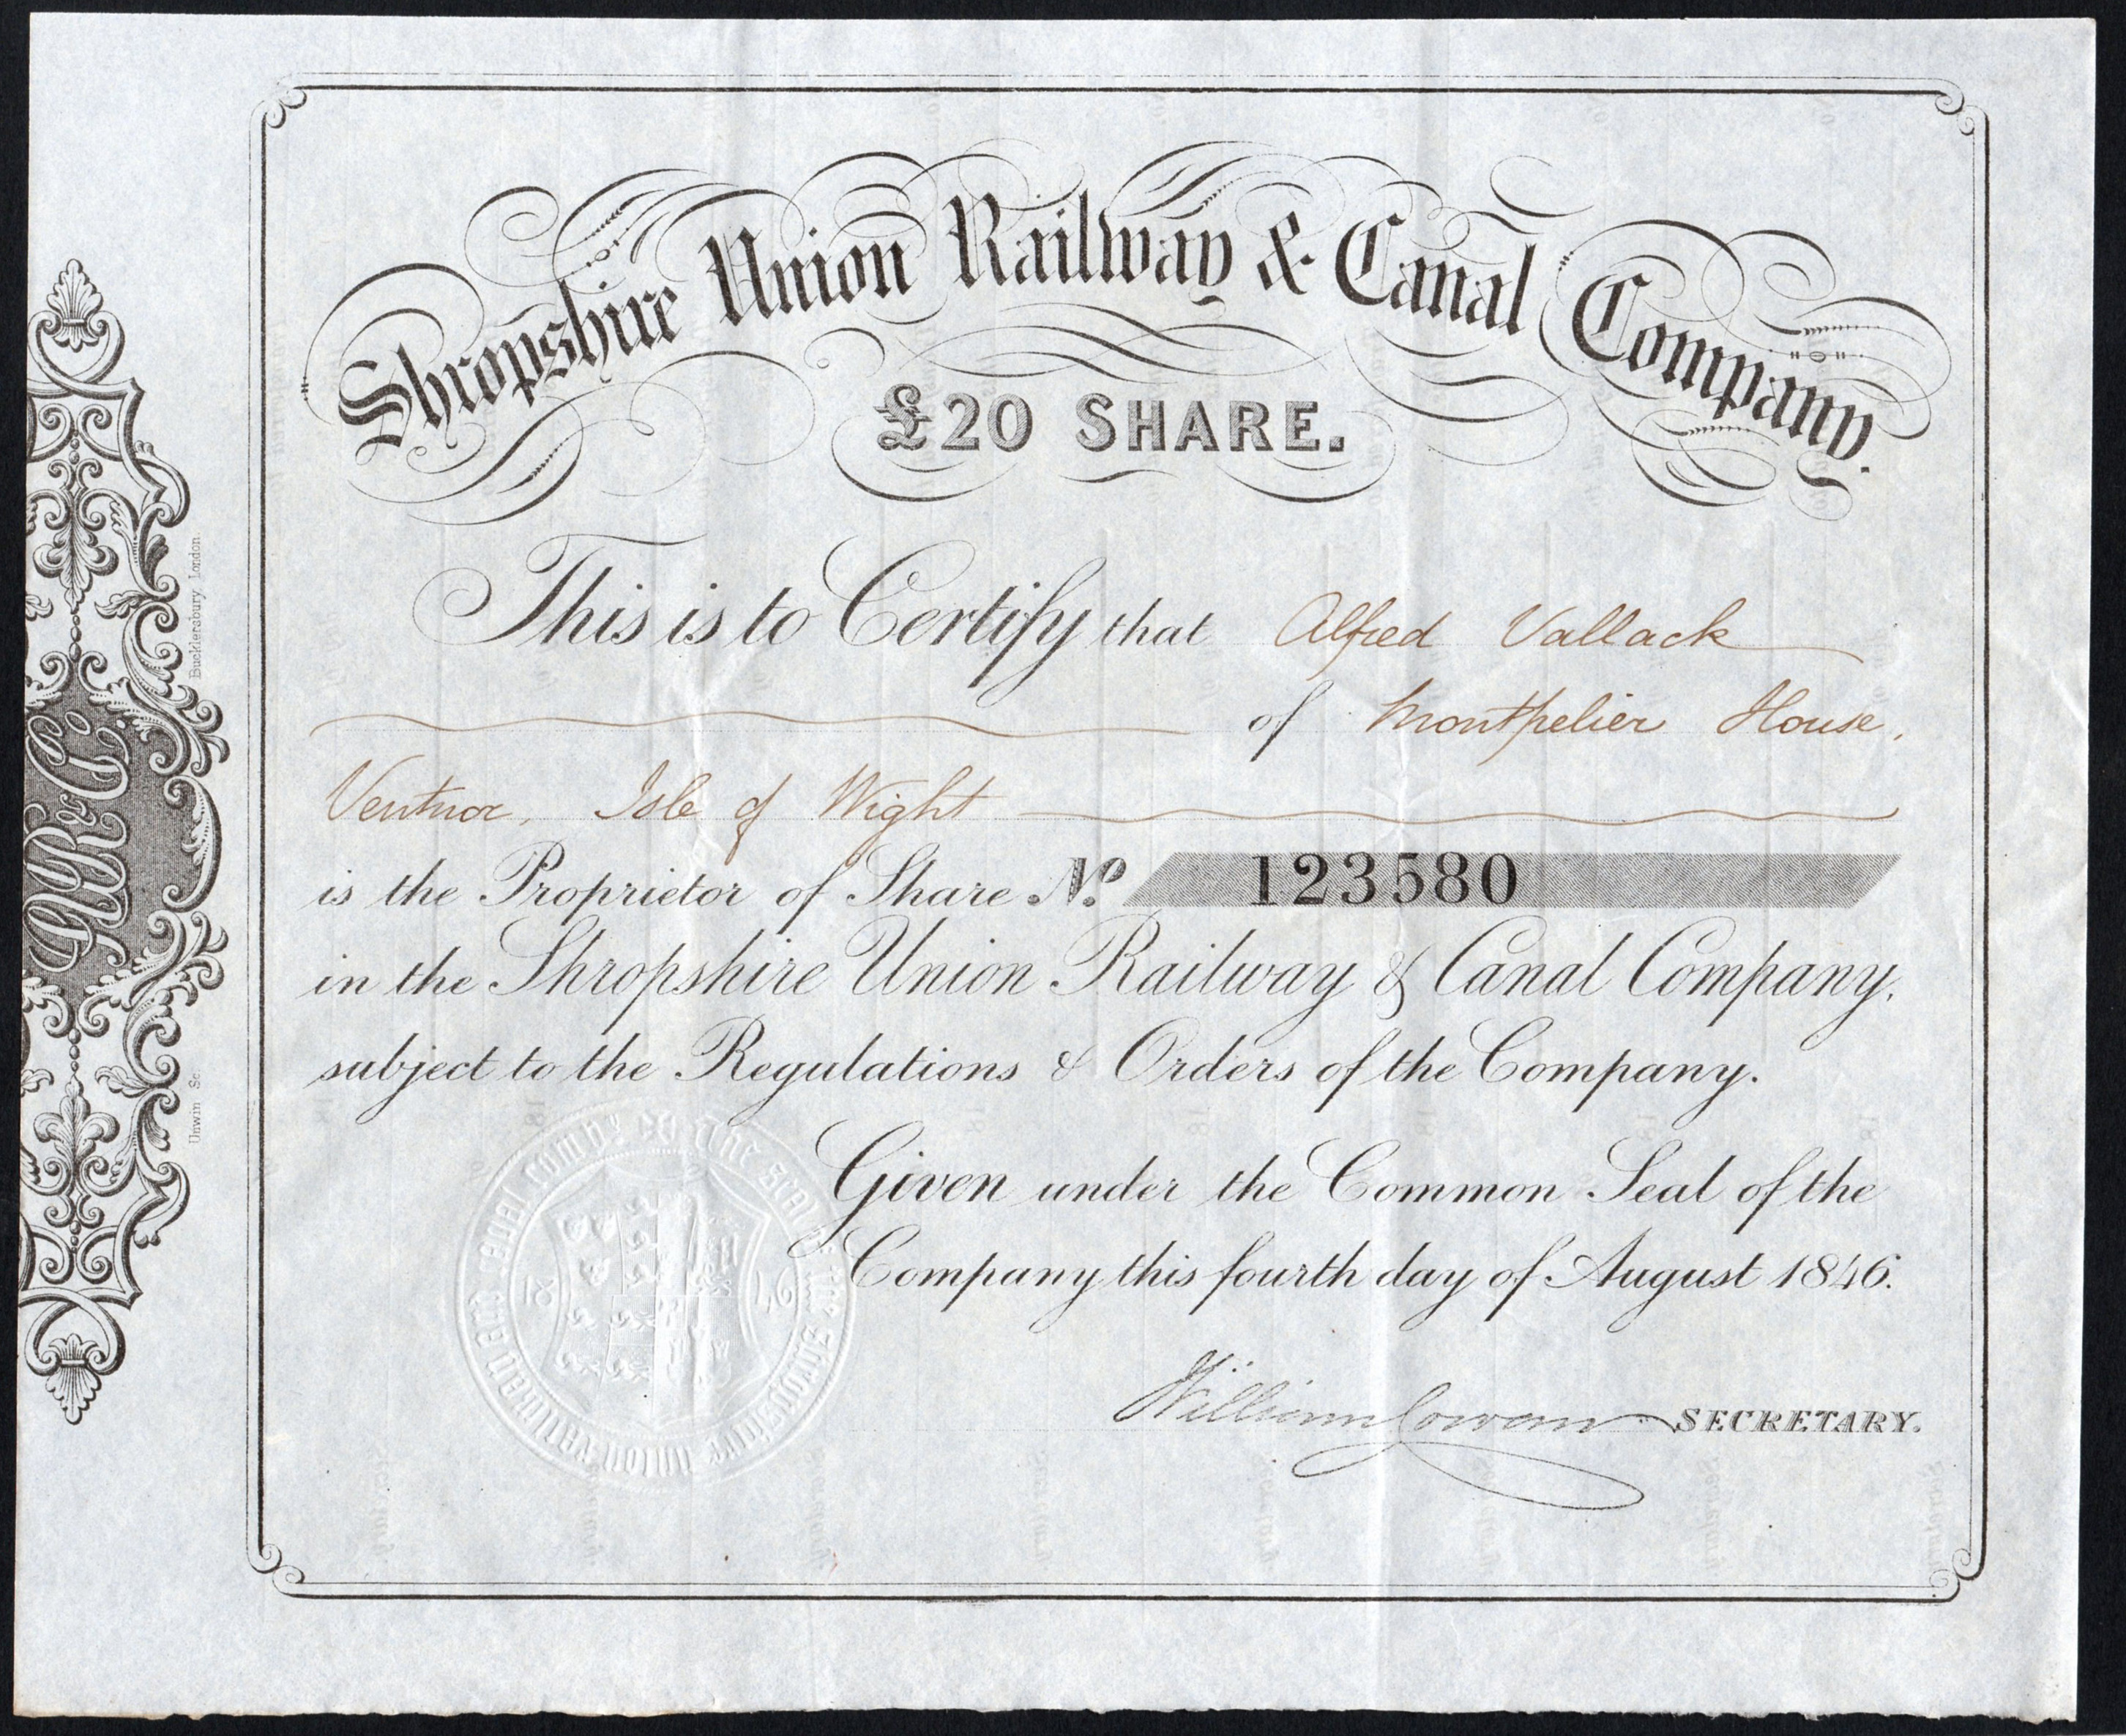 Shropshire Union Railway & Canal Company.
£20 SHARE.
This is to Certify that Alfred Vallack
of Montpelier House,
Ventnor, Isle of Wight
is the Proprietor of Share No. 123580
in the Shropshire Union Railway & Canal Company,
subject to the Regulations & Orders of the Company.
Given under the Common Seal of the
Company this fourth day of August 1846.
William Cowan SECRETARY.
Unwin Sc. Bucklersbury London.
18 46